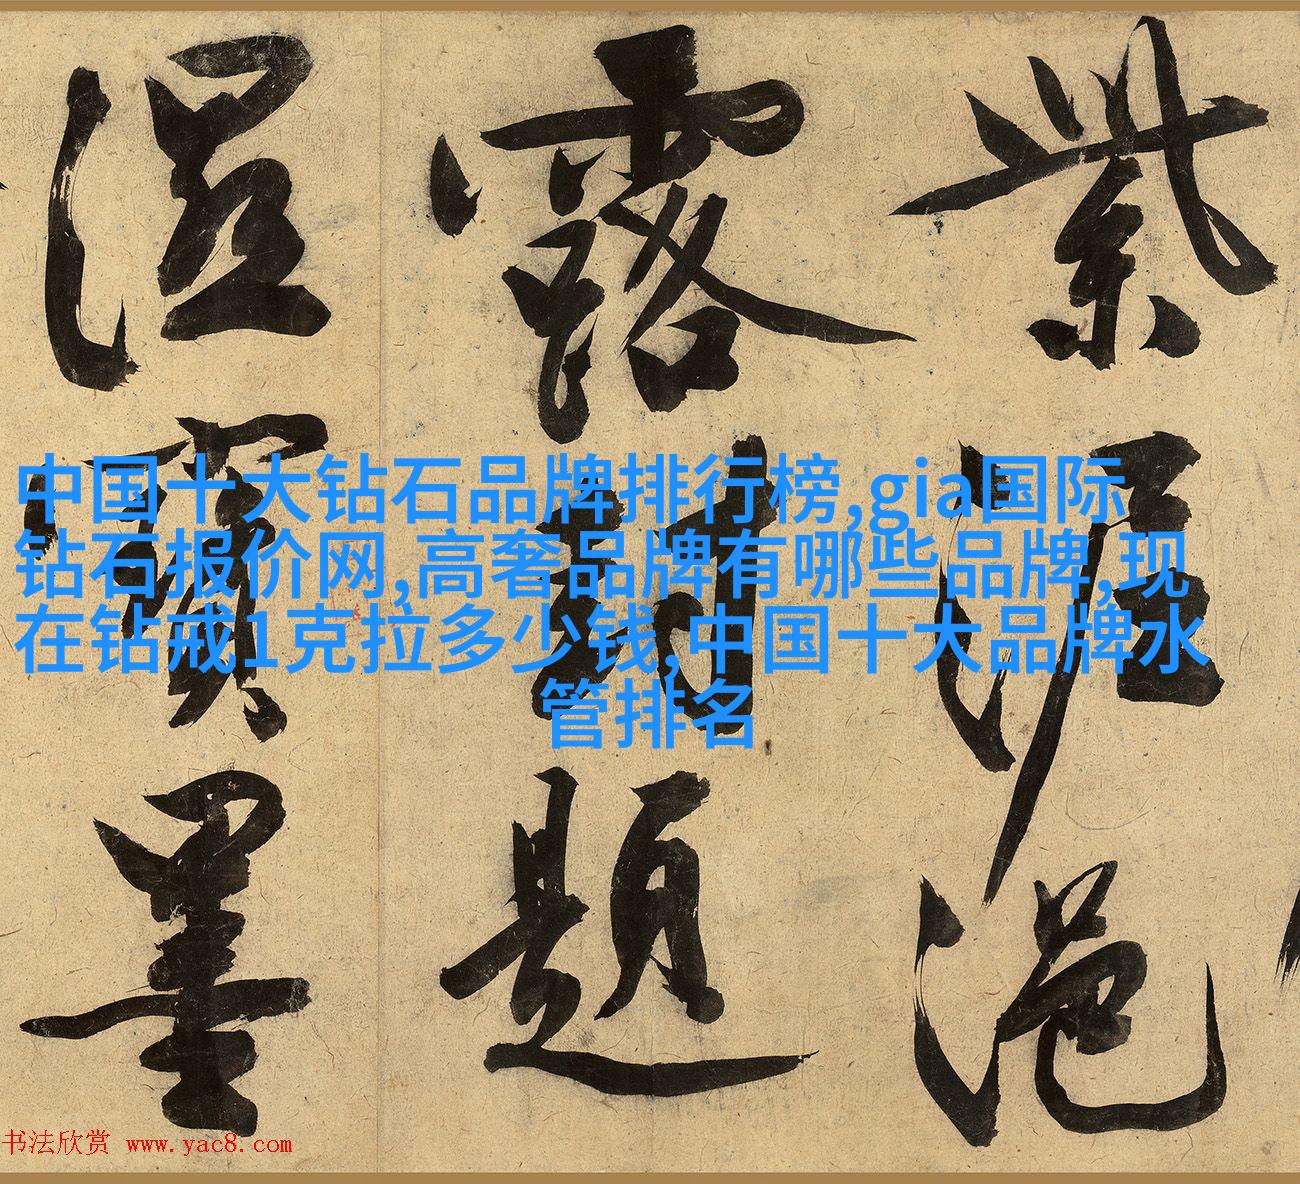 紫泥浥
露封題
湿寶墨
中国十大钻石品牌排行榜,gia国际
钻石报价网,高奢品牌有哪些品牌,现
在钻戒1克拉多少钱,中国十大品牌水
管排名
书法欣赏 www.yac8.com